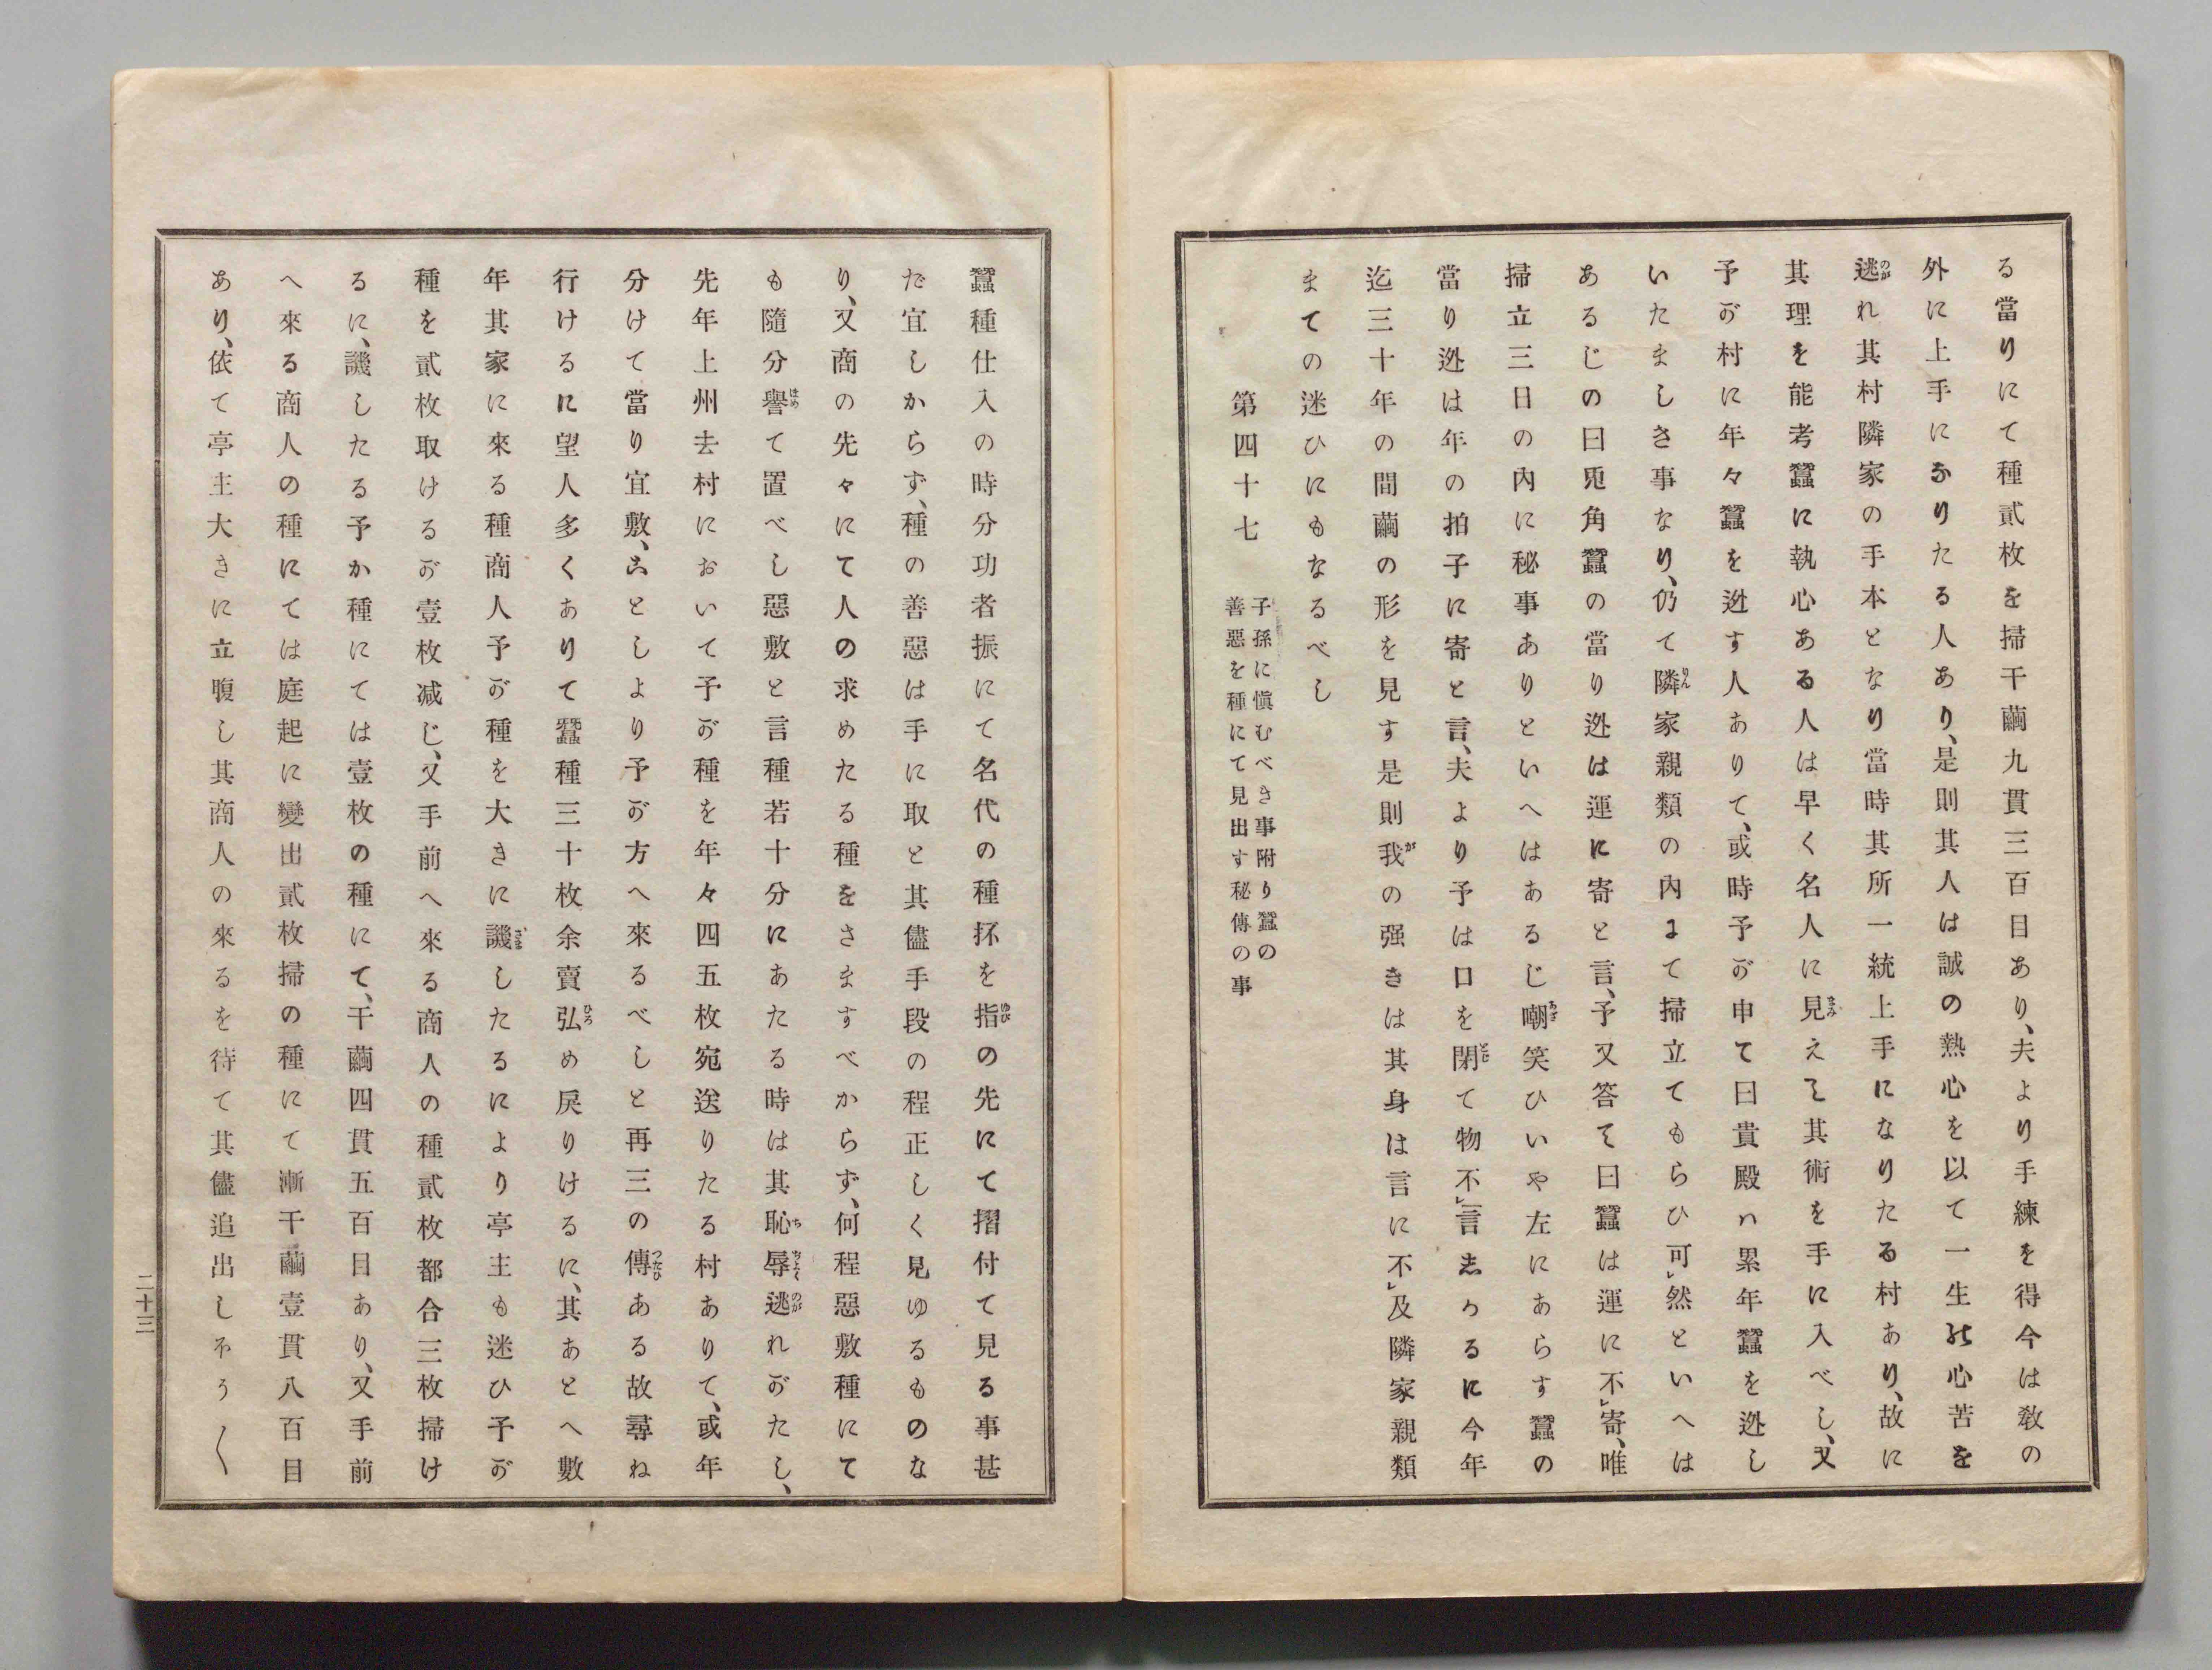 る當りにて種貳枚を掃干繭九貫三百目あり、夫より手練を得今は敎の
外に上手になりたる人あり、是則其人は誠の熱心を以て一生の心苦を
逃れ其村隣家の手本となり當時其所一統上手になりたる村あり、故に
其理を能考蠶に執心ある人は早く名人に見えて其術を手に入べし、又
予が村に年々蠶を迯す人ありて、或時予が申て曰貴殿ハ累年蠶を迯し
いたましき事なり、仍て隣家親類の內にて掃立てもらひ可レ然といへは
あるじの曰兎角蠶の當り迯は運に寄と言、予又答て曰蠶は運に不レ寄、唯
掃立三日の內に秘事ありといへはあるじ嘲笑ひいや左にあらす蠶の
當り迯は年の拍子に寄と言、夫より予は口を閉て物不レ言志かるに今年
迄三十年の間繭の形を見す是則我の强きは其身は言に不レ及隣家親類
まての迷ひにもなるべし
第四十七
子孫に愼むべき事附り蠶の
善惡を種にて見出す秘傳の事
蠶種仕入の時分功者振にて名代の種抔を指の先にて摺付て見る事甚
だ宜しからず、種の善惡は手に取と其儘手段の程正しく見ゆるものな
り、又商の先々にて人の求めたる種をさますべからず、何程惡敷種にて
も隨分譽て置べし惡敷と言種若十分にあたる時は其恥辱逃れがたし、
先年上州去村において予が種を年々四五枚宛送りたる村ありて、或年
分けて當り宜敷、ことしより予が方へ來るべしと再三の傳ある故尋ね
行けるに望人多くありて蠶種三十枚余賣弘め戾りけるに、其あとへ數
年其家に來る種商人予が種を大きに譏したるにより亭主も迷ひ予が
種を貳枚取けるが壹枚減じ、又手前へ來る商人の種貳枚都合三枚掃け
るに、譏したる予か種にては壹枚の種にて、干繭四貫五百目あり、又手前
へ來る商人の種にては庭起に變出貳枚掃の種にて漸干繭壹貫八百目
あり、依て亭主大きに立腹し其商人の來るを待て其儘追出しそう〱
二十三